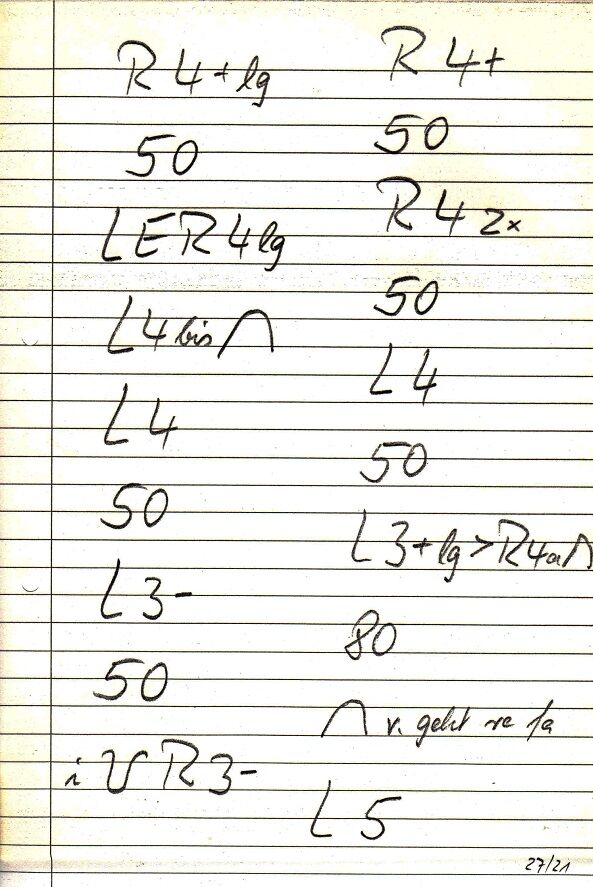 R 4+ lg
50
LER 4 lg
L 4 bis ⋂
L 4
50
L 3-
50
R 3-
R 4+
50
R 4 2x
50
L 4
50
L 3+ lg > R 4
80
⋂ v. geht
L 5
27/21